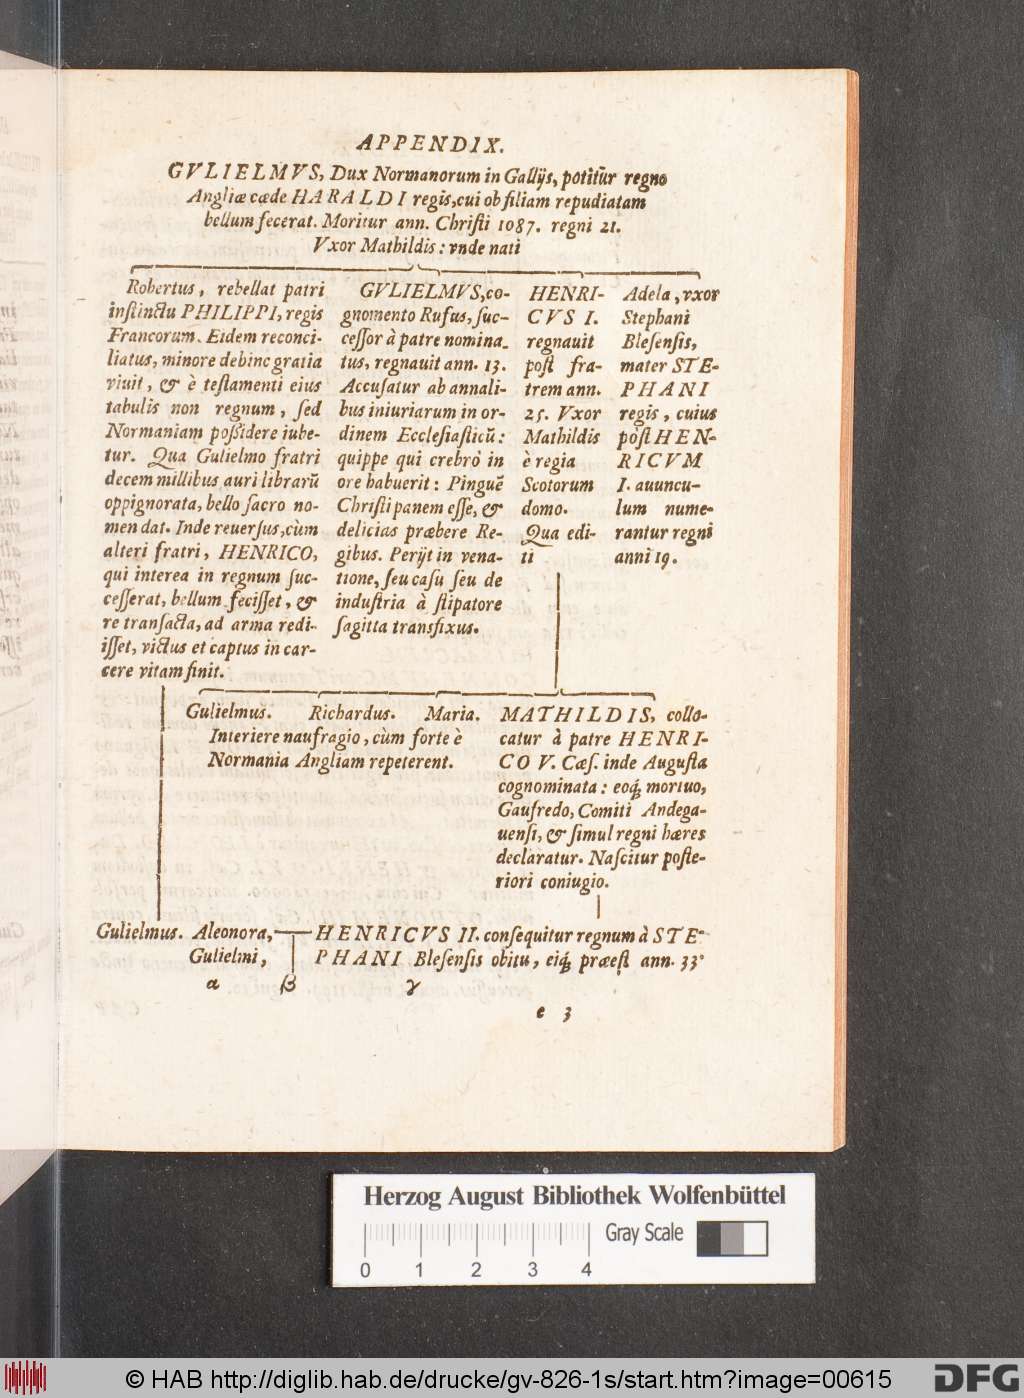 APPENDIX.
GVLIELMVS, Dux Normanorum in Gallijs, potitur regno
Angliæ cæde HARALDI regis, cui ob filiam repudiatam
bellum fecerat. Moritur ann. Christi 1087. regni 21.
Vxor Mathildis: vnde nati
Robertus, rebellat patri
instinctu PHILIPPI, regis
Francorum. Eidem reconci-
liatus, minore dehinc gratia
viuit, & è testamenti eius
tabulis non regnum, sed
Normaniam possidere iube-
tur. Qua Gulielmo fratri
decem millibus auri librarũ
oppignorata, bello sacro no-
men dat. Inde reuersus, cùm
alteri fratri, HENRICO,
qui interea in regnum suc-
cesserat, bellum fecisset, &
re transacta, ad arma redi-
isset, victus et captus in car-
cere vitam finit.
GVLIELMVS, co-
gnomento Rufus, suc-
cessor à patre nomina-
tus, regnauit ann. 13.
Accusatur ab annali-
bus iniuriarum in or-
dinem Ecclesiasticũ:
quippe qui crebrò in
ore habuerit: Pinguẽ
Christi panem esse, &
delicias præbere Re-
gibus. Perijt in vena-
tione, seu casu seu de
industria à stipatore
sagitta transfixus.
HENRI-
CVS I.
regnauit
post fra-
trem ann.
25. Vxor
Mathildis
è regia
Scotorum
domo.
Qua edi-
ti
Adela, vxor
Stephani
Blesensis,
mater STE-
PHANI
regis, cuius
pòst HEN-
RICVM
I. auuncu-
lum nume-
rantur regni
anni 19.
Gulielmus. Richardus. Maria.
Interiere naufragio, cùm forte è
Normania Angliam repeterent.
MATHILDIS, collo-
catur à patre HENRI-
CO V. Cæs. inde Augusta
cognominata: eoq́; mortuo,
Gaufredo, Comiti Andega-
uensi, & simul regni hæres
declaratur. Nascitur poste-
riori coniugio.
Gulielmus. Aleonora,
Gulielmi,
HENRICVS II. consequitur regnum à STE-
PHANI Blesensis obitu, eiq́; præest ann. 33.
α β γ
e 3
Herzog August Bibliothek Wolfenbüttel
Gray Scale
0 1 2 3 4
© HAB http://diglib.hab.de/drucke/gv-826-1s/start.htm?image=00615
DFG